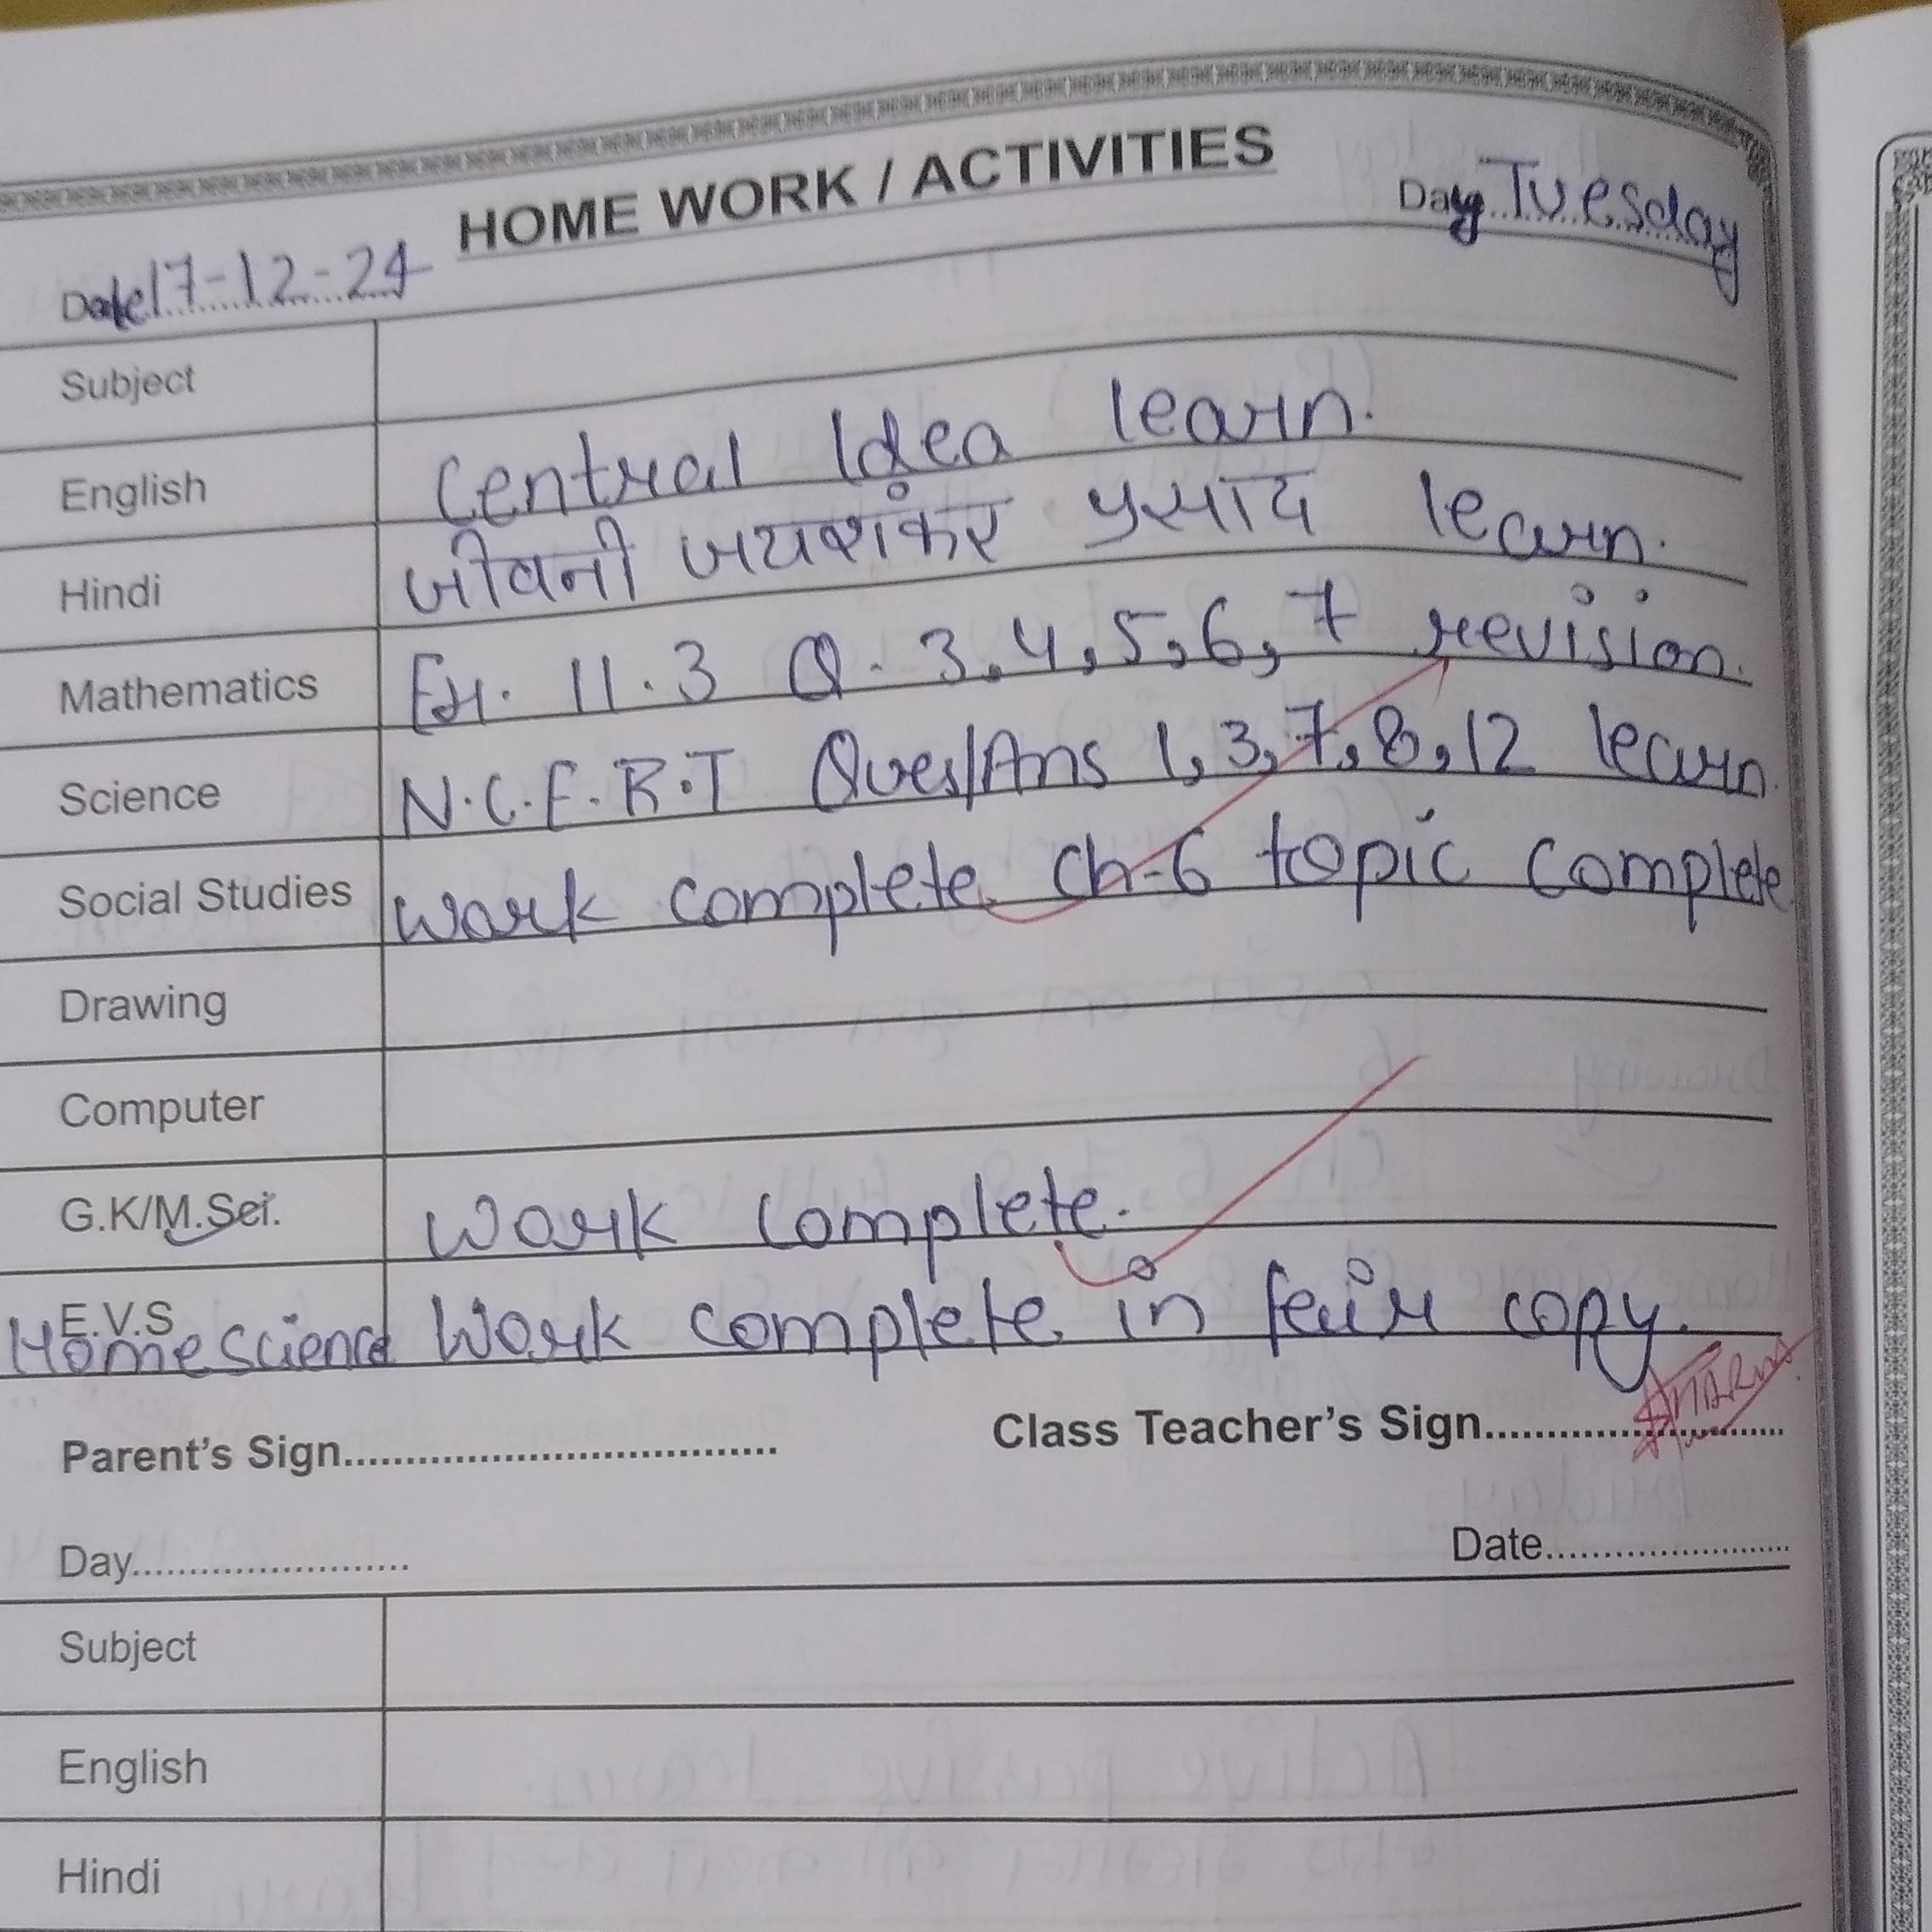 HOME WORK / ACTIVITIES
Date 17-12-24 Day Tuesday
Subject
English Central Idea learn.
Hindi जीवनी जयशंकर प्रसाद learn.
Mathematics Ex. 11.3 Q. 3,4,5,6,7 revision.
Science N.C.E.R.T Ques/Ans 1,3,7,8,12 learn.
Social Studies Work complete. Ch-6 topic complete.
Drawing
Computer
G.K/M.Sci. Work complete.
E.V.S
Home science Work complete in fair copy.
Parent's Sign.................................. Class Teacher's Sign........................
Day....................... Date....................
Subject
English
Hindi